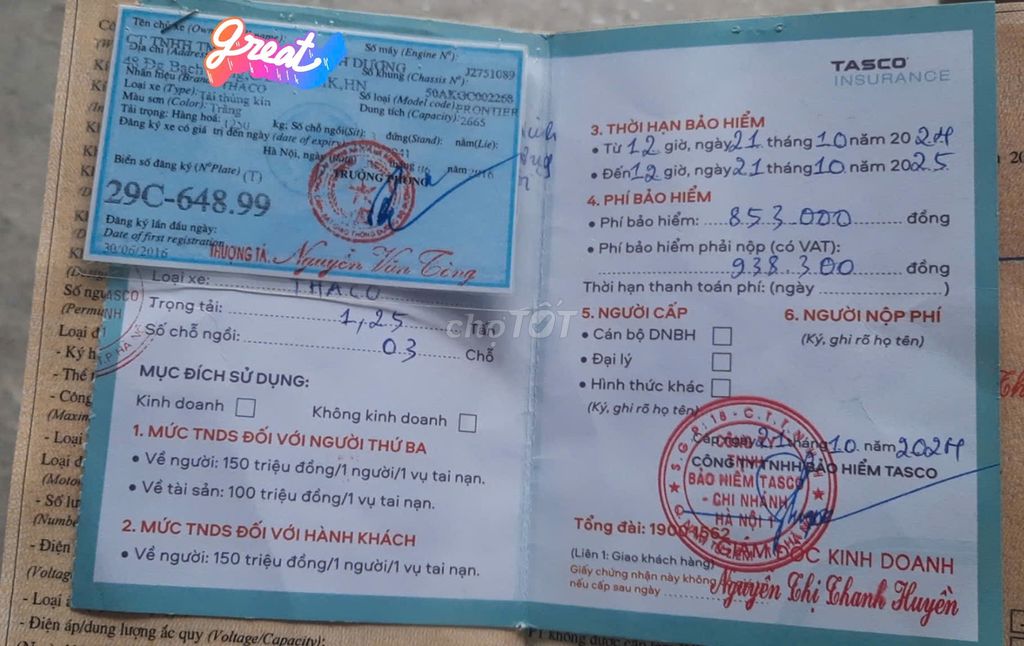 Tên chủ xe (Owner's name):
great
CT TNHH
Số máy (Engine N°):
H DƯƠNG
J2751089
Địa chỉ (Address):
Số khung (Chassis N°):
48 Đg Bạch
K,HN
50AKGC002268
Nhãn hiệu (Brand): THACO
Số loại (Model code): FRONTIER
Loại xe (Type): Tải thùng kín
Dung tích (Capacity): 2665
Màu sơn (Color): Trắng
Tải trọng: Hàng hoá: 1250 kg; Số chỗ ngồi(Sit): 3 đứng(Stand): nằm(Lie):
Đăng ký xe có giá trị đến ngày (date of expiry)
Hà Nội, ngày
tháng 06 năm 2016
Biển số đăng ký (N°Plate) (T)
TRƯỞNG PHÒNG
29C-648.99
Đăng ký lần đầu ngày:
Date of first registration
30/06/2016
THƯỢNG TÁ. Nguyễn Văn Tòng
Loại xe: THACO
Trọng tải: 1,25 Tấn
Số chỗ ngồi: 03 Chỗ
MỤC ĐÍCH SỬ DỤNG:
Kinh doanh
Không kinh doanh
1. MỨC TNDS ĐỐI VỚI NGƯỜI THỨ BA
• Về người: 150 triệu đồng/1 người/1 vụ tai nạn.
• Về tài sản: 100 triệu đồng/1 vụ tai nạn.
2. MỨC TNDS ĐỐI VỚI HÀNH KHÁCH
• Về người: 150 triệu đồng/1 người/1 vụ tai nạn.
TASCO
INSURANCE
3. THỜI HẠN BẢO HIỂM
• Từ 12 giờ, ngày 21 tháng 10 năm 2024
• Đến 12 giờ, ngày 21 tháng 10 năm 2025
4. PHÍ BẢO HIỂM
• Phí bảo hiểm: 853.000 đồng
• Phí bảo hiểm phải nộp (có VAT):
938.300 đồng
Thời hạn thanh toán phí: (ngày )
5. NGƯỜI CẤP
6. NGƯỜI NỘP PHÍ
• Cán bộ DNBH
(Ký, ghi rõ họ tên)
• Đại lý
• Hình thức khác
(Ký, ghi rõ họ tên)
Cấp ngày 21 tháng 10 năm 2024
CÔNG TY TNHH BẢO HIỂM TASCO
S.G.P: 18 - C.T.T.N.H.H
CÔNG TY
TNHH
BẢO HIỂM TASCO
- CHI NHÁNH
HÀ NỘI 1
Tổng đài: 1900 1562
GIÁM ĐỐC KINH DOANH
(Liên 1: Giao khách hàng)
Giấy chứng nhận này không
nếu cấp sau ngày
Nguyễn Thị Thanh Huyền
chợTỐT
TASCO
T.P HÀ
Số ngư
(Permi
Loại đ
- Ký h
- Thể t
- Công
(Maxim
- Loại
Loại đ
(Motor
- Số lư
(Numbe
- Điện
(Voltag
- Loại
- Điện áp/dung lượng ắc quy (Voltage/Capacity):